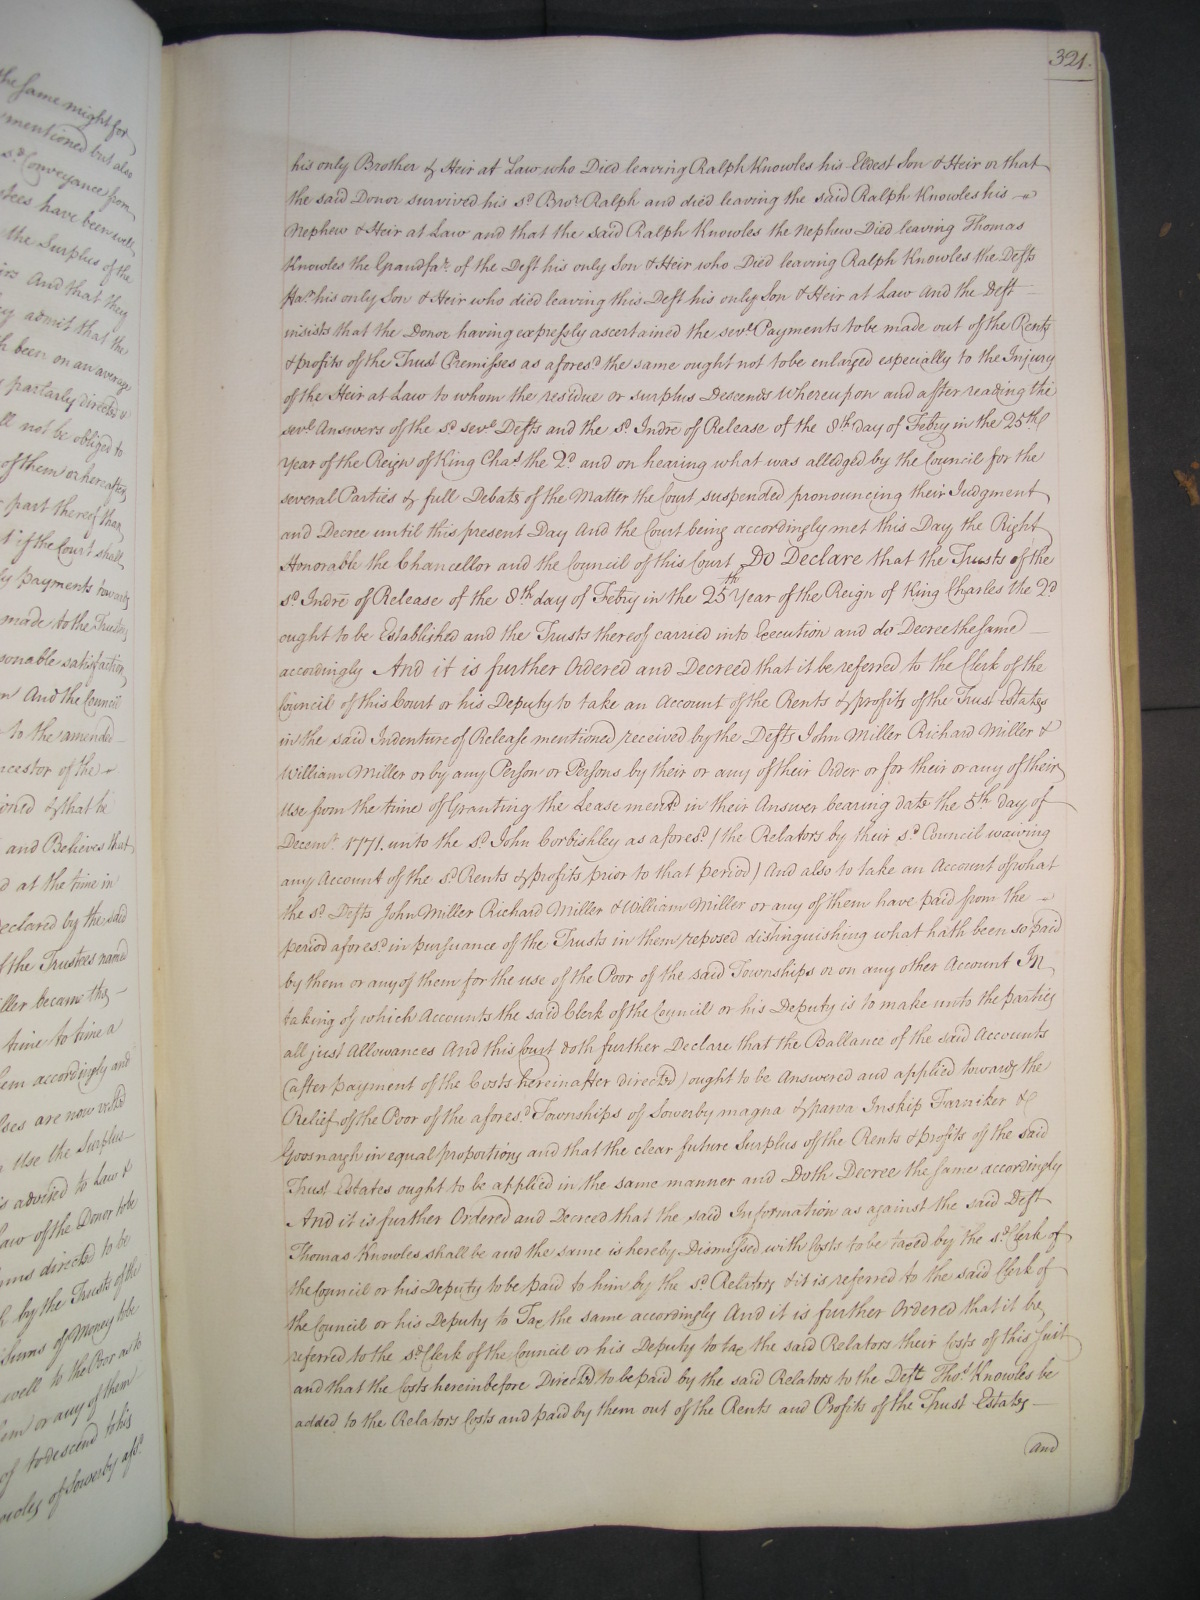 321.
his only Brother & Heir at Law who Died leaving Ralph Knowles his Eldest Son & Heir or that
the said Donor survived his sd. Bror. Ralph and died leaving the said Ralph Knowles his
Nephew & Heir at Law and that the said Ralph Knowles the Nephew Died leaving Thomas
Knowles the Grandfar. of the Deft his only Son & Heir who Died leaving Ralph Knowles the Defts
Far. his only Son & Heir who died leaving this Deft his only Son & Heir at Law And the Deft
insists that the Donor having expressly ascertained the sevl. Payments to be made out of the Rents
& profits of the Trust Premisses as aforesd. the same ought not to be enlarged especially to the Injury
of the Heir at Law to whom the residue or surplus Descends Whereupon and after reading the
sevl. Answers of the sd. sevl. Defts and the sd. Indre of Release of the 8th day of Febry in the 25th
Year of the Reign of King Chas. the 2d. and on hearing what was alledged by the Council for the
several Parties & full Debate of the Matter the Court suspended pronouncing their Judgment
and Decree until this present Day And the Court being accordingly met this Day the Right
Honorable the Chancellor and the Council of this Court Do Declare that the Trusts of the
sd. Indre of Release of the 8th day of Febry in the 25th Year of the Reign of King Charles the 2d
ought to be Established and the Trusts thereof carried into Execution and do Decree the same
accordingly And it is further Ordered and Decreed that it be referred to the Clerk of the
Council of this Court or his Deputy to take an Account of the Rents & profits of the Trust Estates
in the said Indenture of Release mentioned received by the Defts John Miller Richard Miller &
William Miller or by any Person or Persons by their or any of their Order or for their or any of their
Use from the time of Granting the Lease mentd. in their Answer bearing date the 5th day of
Decemr. 1771. unto the sd. John Corbishley as aforesd. (the Relators by their sd. Council waiving
any Account of the sd. Rents & profits prior to that period) And also to take an Account of what
the sd. Defts John Miller Richard Miller & William Miller or any of them have paid from the
period aforesd. in pursuance of the Trusts in them reposed distinguishing what hath been so paid
by them or any of them for the use of the Poor of the said Townships or on any other Account In
taking of which Accounts the said Clerk of the Council or his Deputy is to make unto the parties
all just Allowances And this Court doth further Declare that the Ballance of the said Accounts
(after payment of the Costs hereinafter directed) ought to be Answered and applied towards the
Relief of the Poor of the aforesd. Townships of Sowerby magna & parva Inskip Farniker &
Goosnargh in equal proportions and that the clear future Surplus of the Rents & profits of the said
Trust Estates ought to be applied in the same manner and Doth Decree the same accordingly
And it is further Ordered and Decreed that the said Information as against the said Deft
Thomas Knowles shall be and the same is hereby Dismissed with Costs to be taxed by the sd. Clerk of
the Council or his Deputy to be paid to him by the sd. Relators & it is referred to the said Clerk of
the Council or his Deputy to Tax the same accordingly And it is further Ordered that it be
referred to the sd. Clerk of the Council or his Deputy to tax the said Relators their Costs of this Suit
and that the Costs hereinbefore Directed to be paid by the said Relators to the Deft Thos. Knowles be
added to the Relators Costs and paid by them out of the Rents and Profits of the Trust Estates
and
the same might for
mentioned but also
sd. Conveyance from
have been well
the Surplus of the
And that they
admit that the
been on an average
partarly directed &
ll not be obliged to
of them or hereafter
part thereof than
if the Court shall
payments towards
made to the Trustees
sonable satisfaction
And the Council
to the amended
ncestor of the
& that he
and Believes that
at the time in
eclared by the said
the Trustees named
iller became the
time to time a
em accordingly and
ses are now vested
Use the Surplus
is advised to Law &
aw of the Donor to be
directed to be
by the Trusts of the
Sums of Money to be
well to the Poor as to
em or any of them
of to descend to his
of Sowerby afsd.